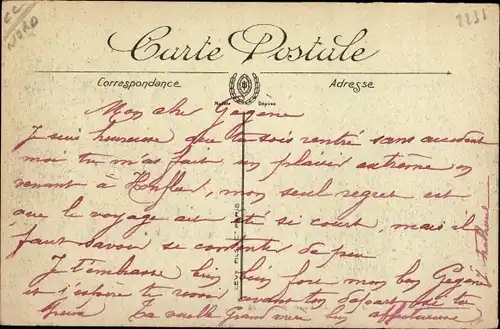 CC
NORD
2231
Carte Postale
Correspondance
Adresse
Marque Déposée
Mon cher Gégène
Je suis heureuse que tu sois rentré sans accident
moi tu m'as fait un plaisir extrême en
venant à Honfleur, mon seul regret est
que le voyage ait été si court, mais il
faut savoir se contenter de peu
Je t'embrasse bien bien fort mon bon Gégène
et j'espère te revoir avant ton départ
Ta vieille grand mère bien affectueuse
LEVY FILS PARIS